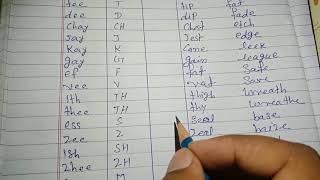 tee T tip fate
dee D dip fade
Chay CH Chest etch
Jay J Jest edge
Kay K Came leek
gay G gain league
ef F fat Safe
vee V vat Save
ith TH thigh Wreath
thee TH thy Wreathe
ess S Seal base
zee Z Zeal baize
ish SH
zhee ZH
M